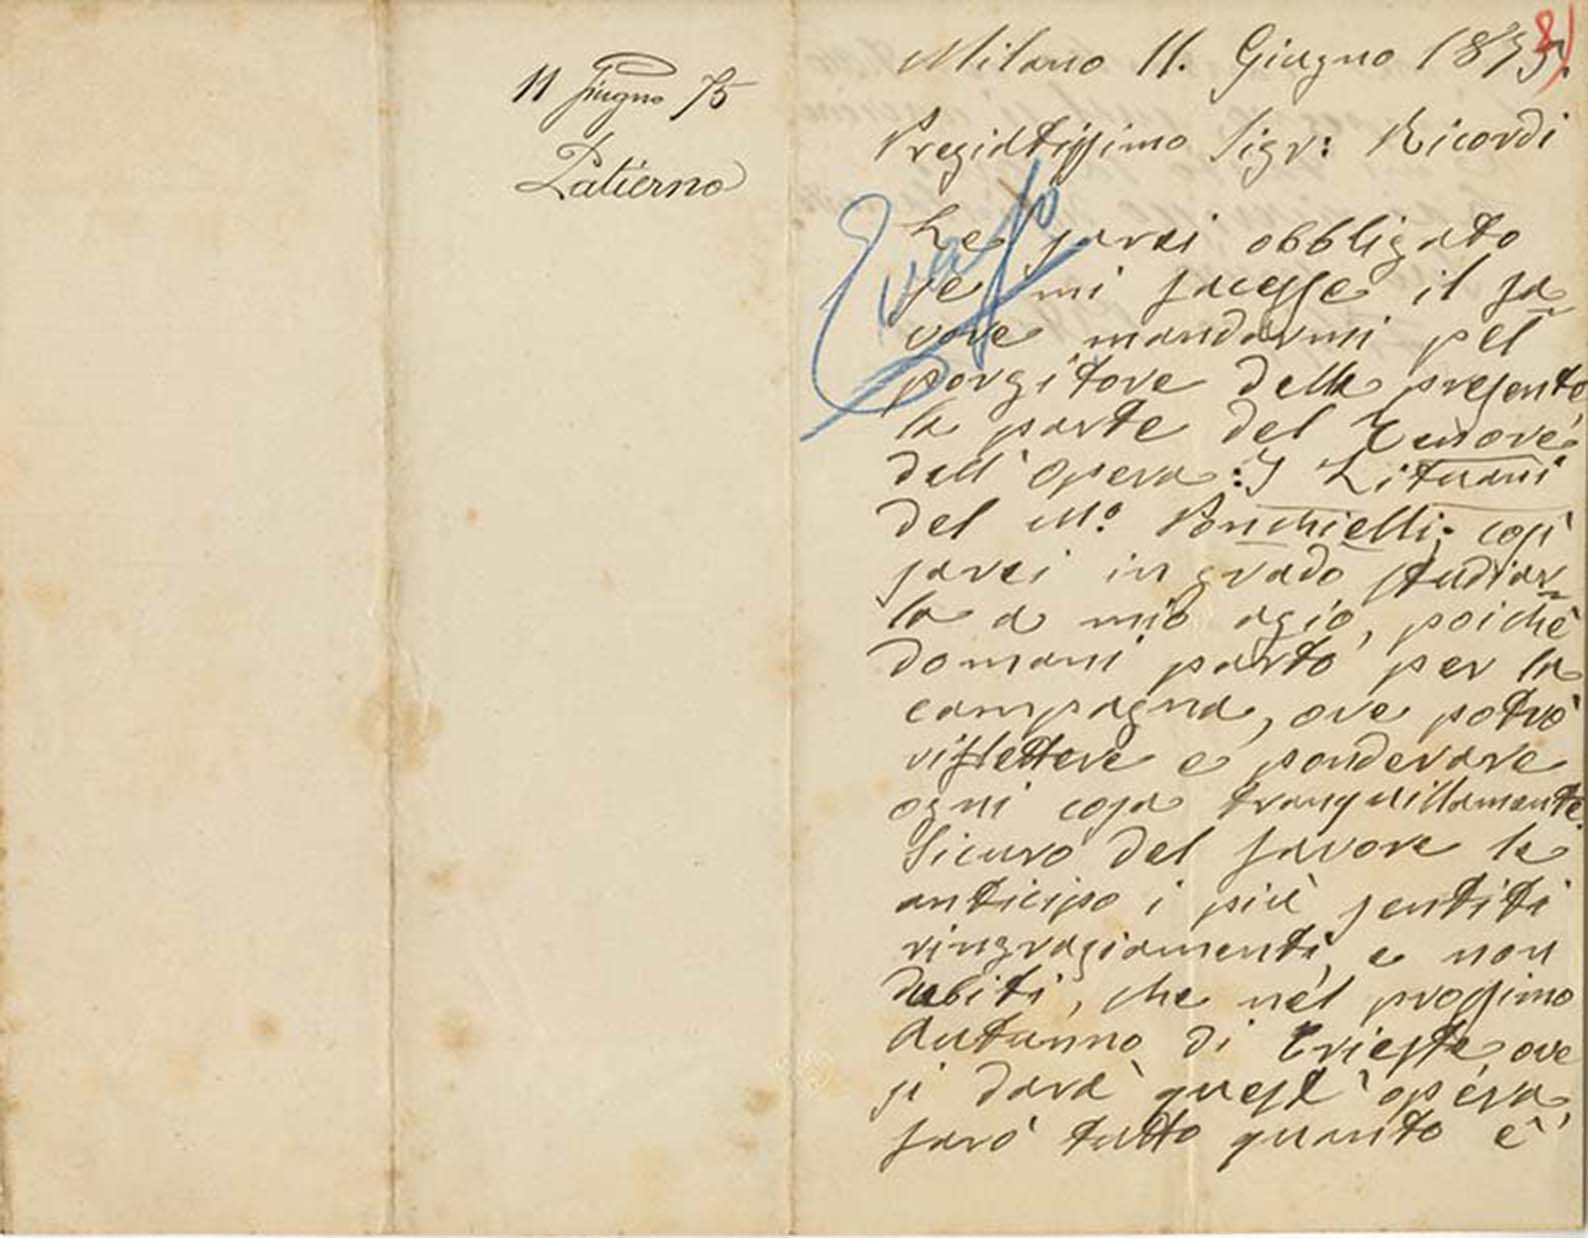 11 Giugno 75
Patierno
8)
Milano 11. Giugno 1875.
Pregiatissimo Sigr: Ricordi
Evaso
Le sarei obbligato
se mi facesse il fa
vore mandarmi pel
porgitore della presente,
la parte del Tenore
dell' opera: I Lituani
del Mo. Ponchielli; così
sarei in grado studiar
la a mio agio, poichè
domani parto per la
campagna, ove potrò
riflettere e ponderare
ogni cosa tranquillamente.
Sicuro del favore le
anticipo i più sentiti
ringraziamenti, e non
dubiti, che nel prossimo
Autunno di Trieste, ove
si darà quest' opera,
farò tutto quanto è